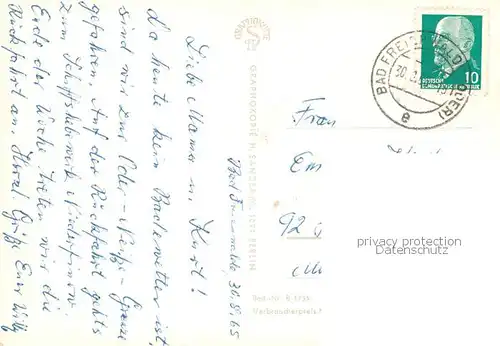 Bad Freienwalde, 30.8.65
Liebe Mama u. Kurt!
Da heute kein Badewetter ist,
sind wir zur Oder-Neiße-Grenze
gefahren. Auf der Rückfahrt gehts
zum Schiffshebewerk Niederfinow.
Ende der Woche treten wir die
Rückfahrt an. Herzl. Grüße Euer Willy
GRAPHOKOPIE H. SANDER KG, 1055 BERLIN
Best.-Nr. B
BAD FREIENWALDE (ODER)
30.
e
DEUTSCHE
DEMOKRATISCHE REPUBLIK
10
Frau
Em
92
privacy protection
Datenschutz